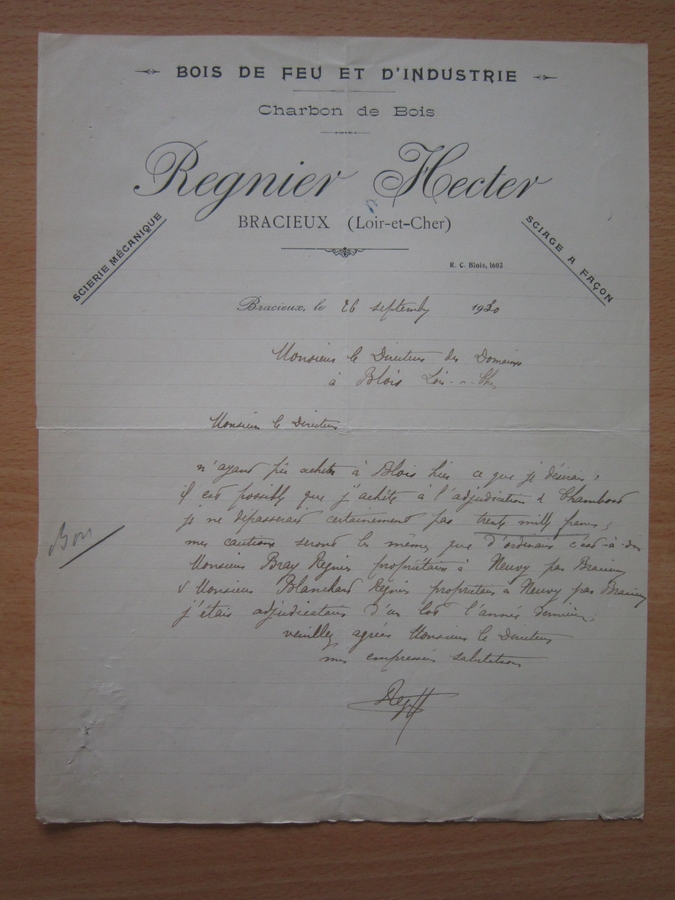 BOIS DE FEU ET D'INDUSTRIE
Charbon de Bois
Regnier Hecter
BRACIEUX (Loir-et-Cher)
SCIERIE MÉCANIQUE
SCIAGE A FAÇON
R. C. Blois, 1602
Bracieux, le 26 septembre 1930
Monsieur le Directeur des Domaines
à Blois Loir-et-Cher
Monsieur le Directeur
n'ayant pu acheter à Blois hier ce que je désirais,
il est possible que j'achète à l'adjudication de Chambord
je ne dépasserai certainement pas trente mille francs,
mes cautions seront les mêmes que d'ordinaire c'est-à-dire
Bon
Monsieur Bray Regnier propriétaire à Neuvy par Bracieux
& Monsieur Blanchard Regnier propriétaire à Neuvy par Bracieux
j'étais adjudicataire d'un lot l'année dernière,
veuillez agréer Monsieur le Directeur
mes empressées salutations